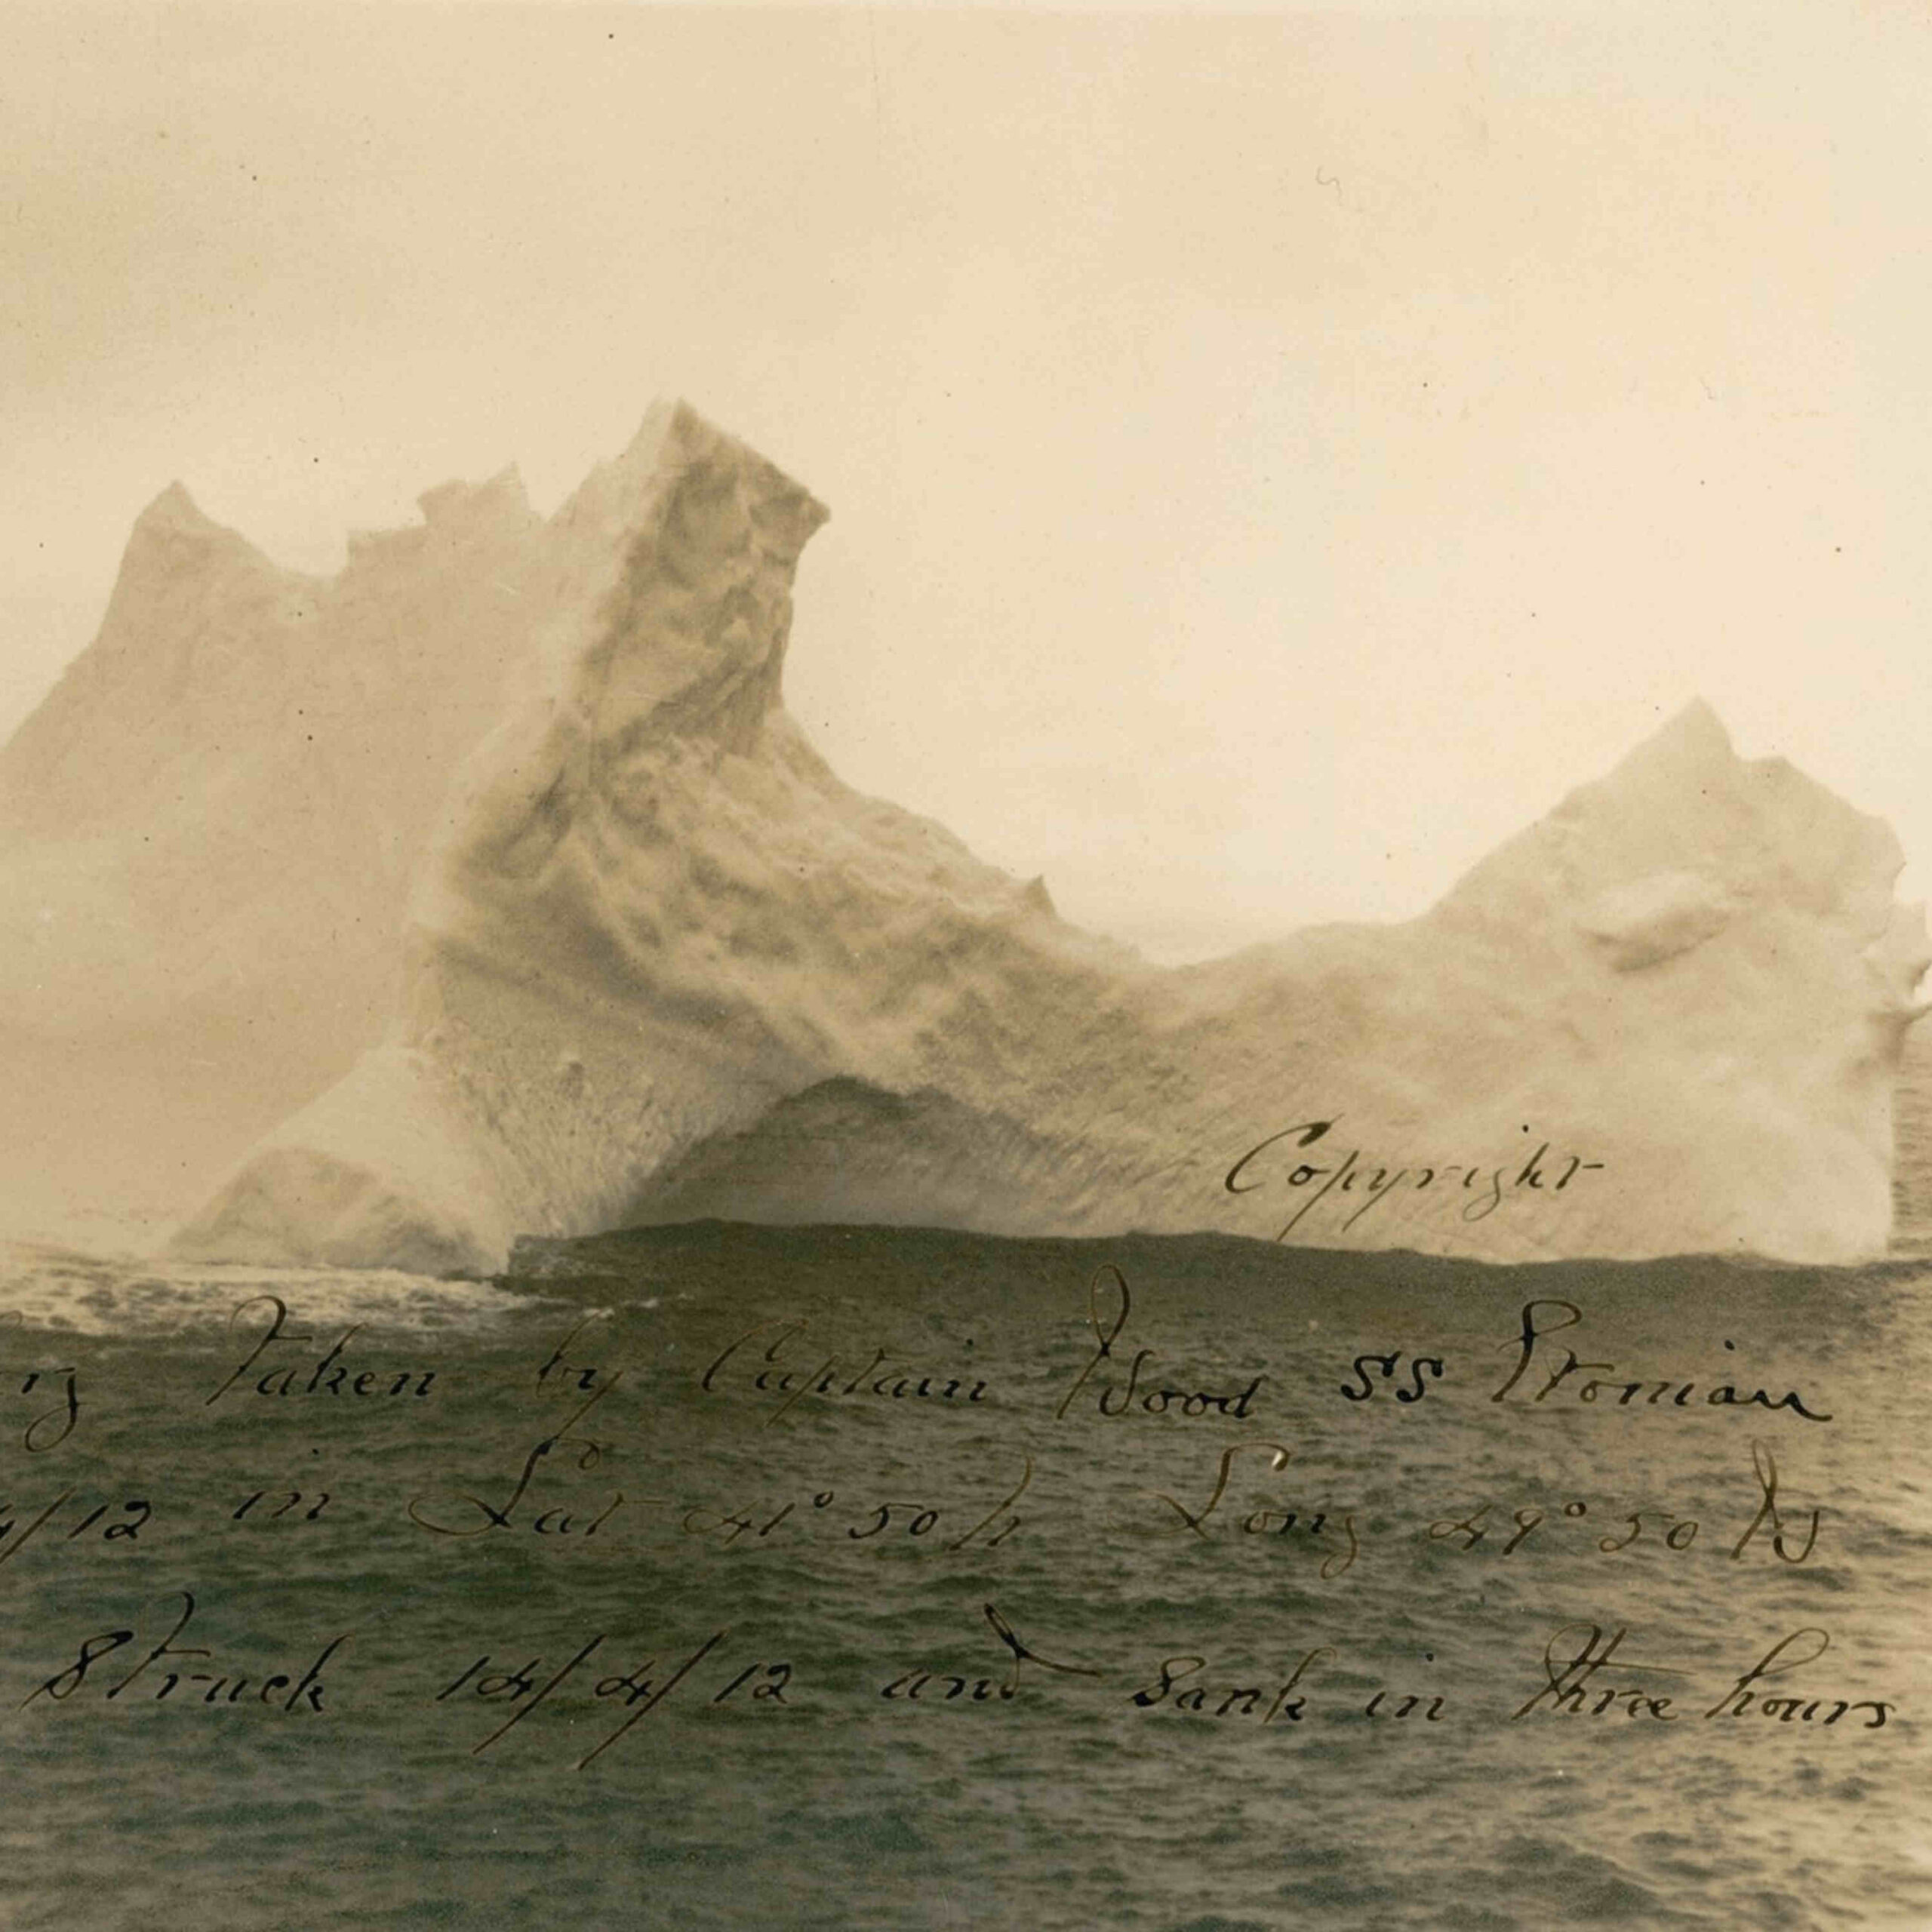 Copyright
rg Taken by Captain Wood SS Etonian
4/12 in Lat 41° 50 N Long 49° 50 W
Struck 14/4/12 and Sank in three hours